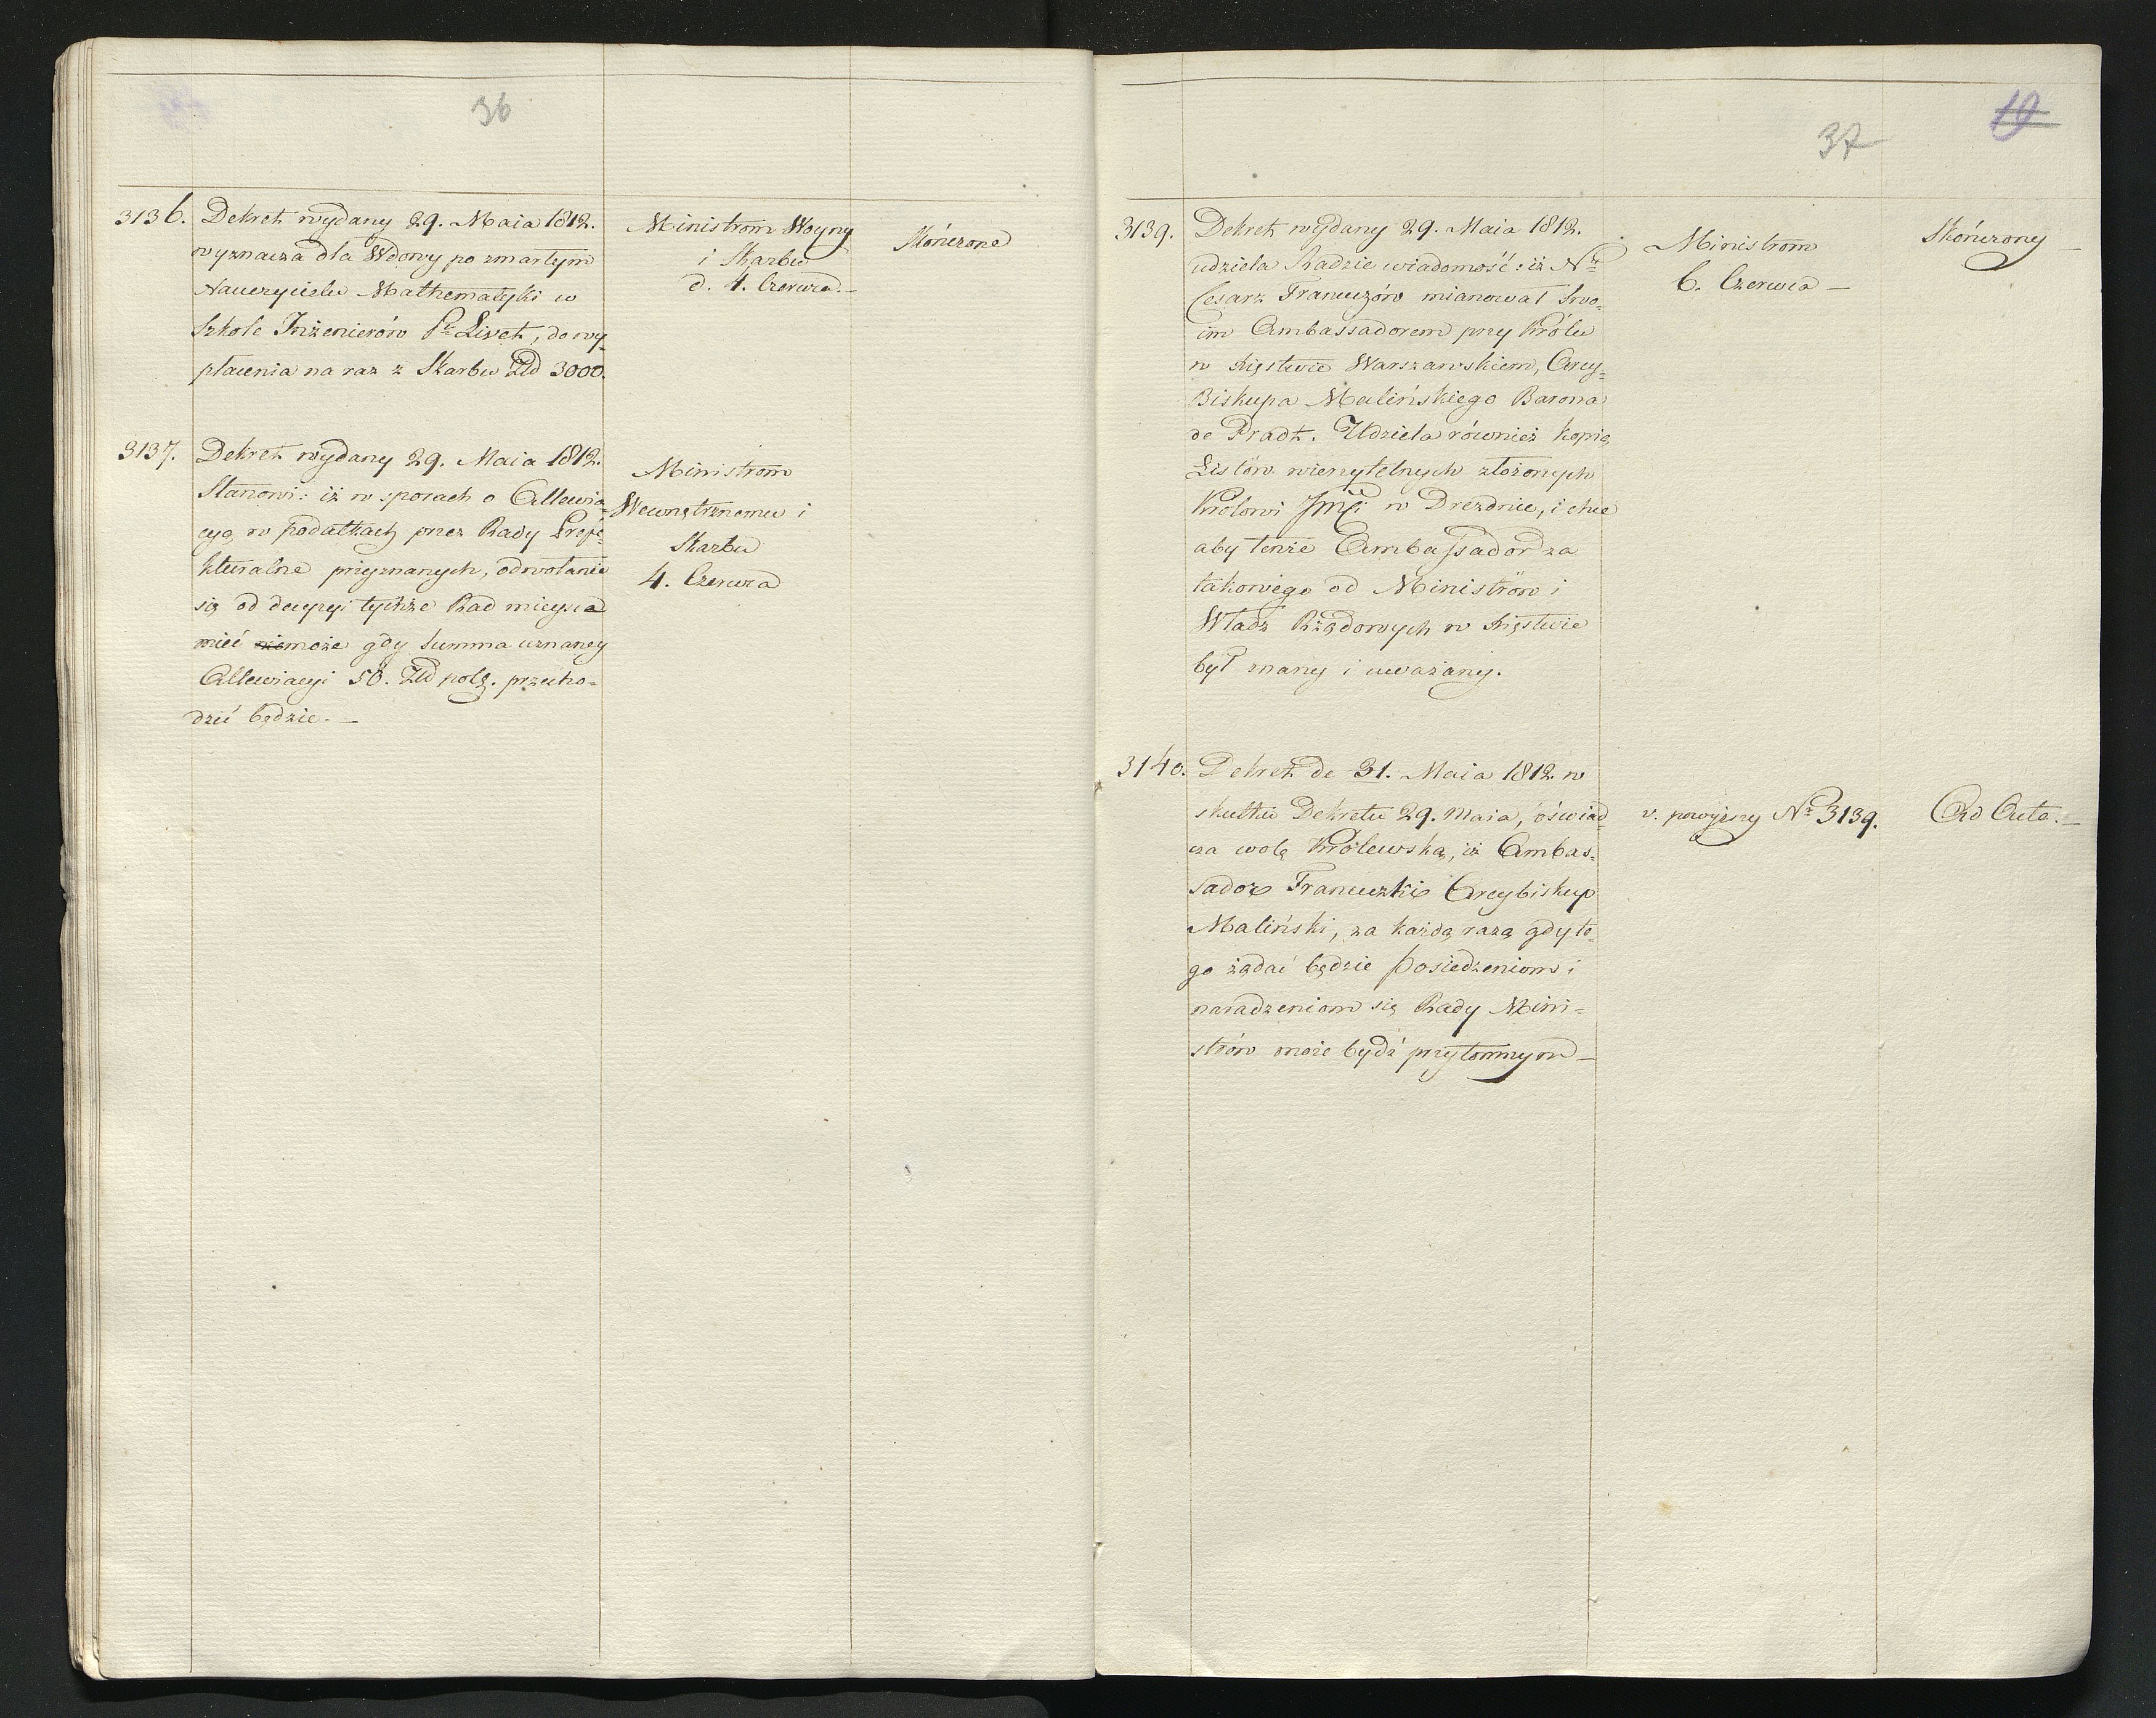 36
3136. Dekret wydany 29. Maia 1812.
wyznacza dla Wdowy po zmarłym
Nauczycielu Mathematyki w
Szkole Inżenierów Pr Livet, do wy-
płacenia na raz z Skarbu Złł 3000.
Ministrom Woyny
i Skarbu
d. 4. Czerwca. —
Skończone
3137. Dekret wydany 29. Maia 1812.
Stanowi: iż w sporach o Allewia-
cyą w podatkach przez Rady Prefe-
kturalne przyznanych, odwołanie
się od decyzyi tychże Rad mieysca
mieć nie może gdy Summa uznaney
Allewiacyi 50. Złł polś. przecho-
dzić będzie. —
Ministrom
Wewnętrznemu i
Skarbu
4. Czerwca
19
37
3139. Dekret wydany 29. Maia 1812.
udziela Radzie wiadomość: iż Nr
Cesarz Francuzów mianował Swo-
im Ambassadorem przy Królu
w Xięstwie Warszawskiem, Arcy-
Biskupa Malińskiego Barona
de Pradt. Udziela również kopię
Listów wierzytelnych złożonych
Królowi Jmći w Dreznie, i chce
aby tenże Ambassador za
takowego od Ministrów i
Władz Rządowych w Xięstwie
był znany i uważany.
Ministrom
6. Czerwca —
Skończony —
3140. Dekret de 31. Maia 1812. w
skutku Dekretu 29. Maia, oświad-
cza wolę Królewską, iż Ambas-
sador Francuzki Arcybiskup
Maliński, za każdą razą gdy te-
go żądać będzie posiedzeniom i
naradzeniom się Rady Mini-
strów może bydź przytomnym —
v. powyższy Nr 3139.
Ad Acta. —